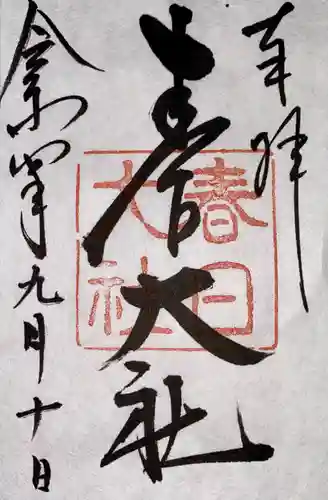 奉拝
春日大社
春日
大社
令和六年九月十日